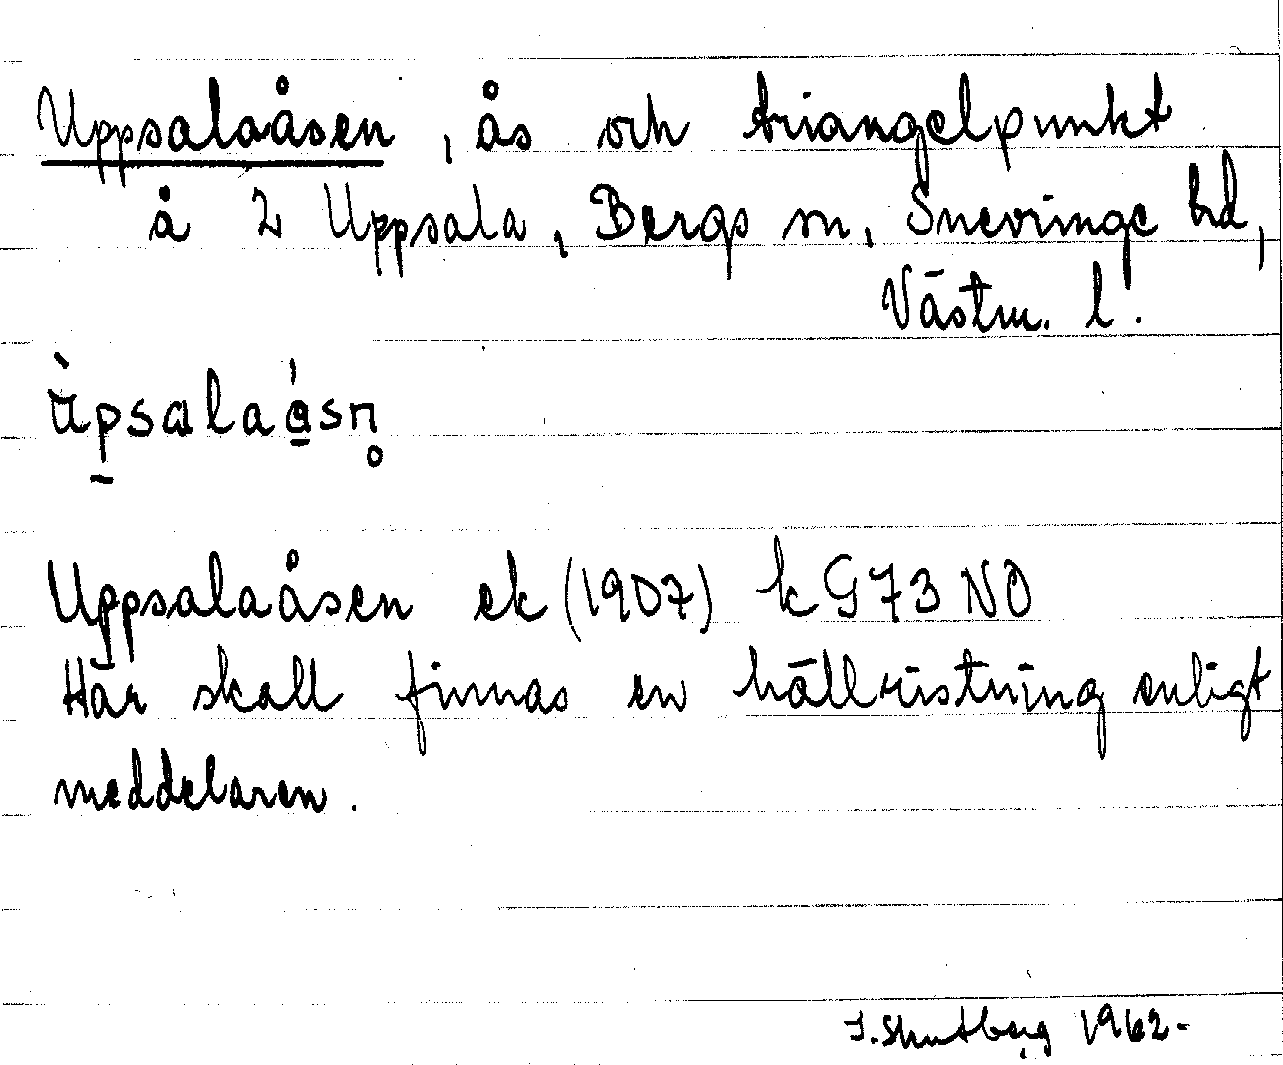 Uppsalaåsen, ås och triangelpunkt
å 2 Uppsala, Bergs sn, Snevringe hd,
Västm. l.
Uppsalaåsen ek (1907) k G 73 NO
Här skall finnas en hällristning enligt
meddelaren.
1962-